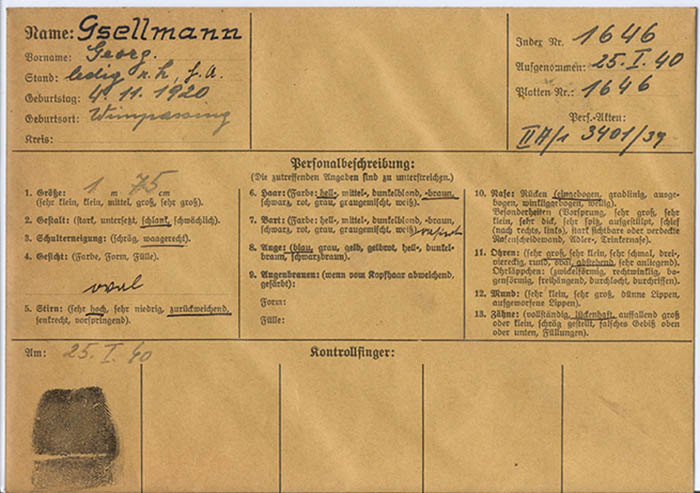 Name: Gsellmann
Vorname: Georg.
Stand: ledig r. k., f. A.
Geburtstag: 4. 11. 1920
Geburtsort: Wimpassing
Kreis:
Index Nr. 1646
Aufgenommen: 25. I. 40
Platten Nr.: 1646
Pers.-Akten:
II A/1 3401/39
Personalbeschreibung:
(Die zutreffenden Angaben sind zu unterstreichen).
1. Größe: 1 m 75 cm
(sehr klein, klein, mittel, groß, sehr groß).
2. Gestalt: (stark, untersetzt, schlank, schwächlich).
3. Schulterneigung: (schräg, waagerecht).
4. Gesicht: (Farbe, Form, Fülle).
oval
5. Stirn: (sehr hoch, sehr niedrig, zurückweichend,
senkrecht, vorspringend).
6. Haar: (Farbe: hell-, mittel-, dunkelblond, -braun,
schwarz, rot, grau, graugemischt, weiß).
7. Bart: (Farbe: hell-, mittel-, dunkelblond, -braun,
schwarz, rot, grau, graugemischt, weiß) rasiert
8. Auge: (blau, grau, gelb, gelbrot, hell-, dunkel-
braun, schwarzbraun).
9. Augenbrauen: (wenn vom Kopfhaar abweichend,
gefärbt):
Form:
Fülle:
10. Nase: Rücken (eingebogen, gradlinig, ausge-
bogen, winkliggebogen, wellig).
Besonderheiten (Vorsprung, sehr groß, sehr
klein, sehr dick, sehr spitz, aufgestülpt, schief
(nach rechts, links), stark sichtbare oder verdeckte
Nasenscheidewand, Adler-, Trinkernase).
11. Ohren: (sehr groß, sehr klein, sehr schmal, drei-,
viereckig, rund, oval, abstehend, sehr anliegend).
Ohrläppchen: (zwickelförmig, rechtwinklig, bo-
genförmig, freihängend, durchlocht, durchrissen).
12. Mund: (sehr klein, sehr groß, dünne Lippen,
aufgeworfene Lippen).
13. Zähne: (vollständig, lückenhaft, auffallend groß
oder klein, schräg gestellt, falsches Gebiß oben
oder unten, Füllungen).
Am: 25. I. 40
Kontrollfinger: